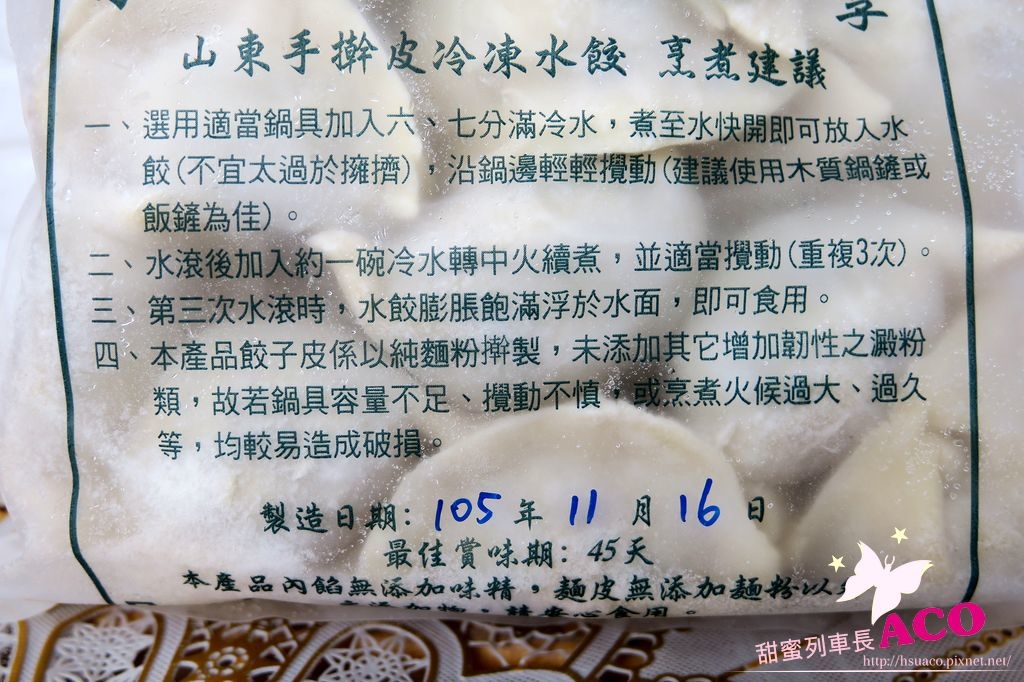 山東手擀皮冷凍水餃 烹煮建議
一、選用適當鍋具加入六、七分滿冷水，煮至水快開即可放入水
餃(不宜太過於擁擠)，沿鍋邊輕輕攪動(建議使用木質鍋鏟或
飯鏟為佳)。
二、水滾後加入約一碗冷水轉中火續煮，並適當攪動(重複3次)。
三、第三次水滾時，水餃膨脹飽滿浮於水面，即可食用。
四、本產品餃子皮係以純麵粉擀製，未添加其它增加韌性之澱粉
類，故若鍋具容量不足、攪動不慎，或烹煮火候過大、過久
等，均較易造成破損。
製造日期: 105 年 11 月 16 日
最佳賞味期: 45天
本產品內餡無添加味精，麵皮無添加麵粉以
食用。
甜蜜列車長ACO
http://hsuaco.pixnet.net/